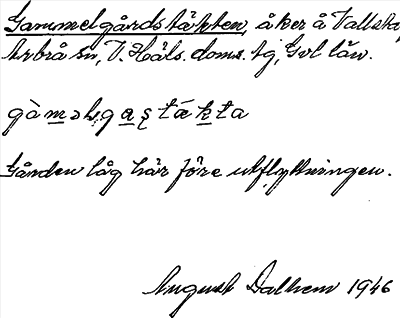 Gammelgårdstäkten, åker å Vallsta,
Arbrå sn, V. Häls. doms. tg, Gvl län.
gàməlgaʂtákta
Gården låg här före utflyttningen.
August Dalhem 1946